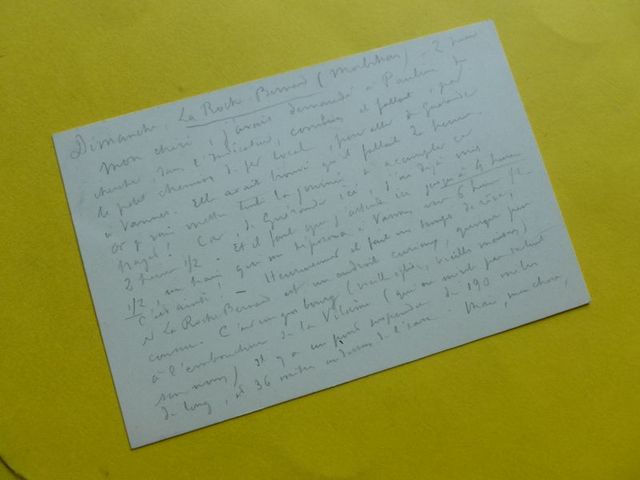 Dimanche, La Roche Bernard (Morbihan) - 2 heures
Mon chéri, j'avais demandé à Pauline de
chercher dans l'Indicateur, combien il fallait, par
le petit chemin de fer local, pour aller de Guérande
à Vannes. Elle avait trouvé qu'il fallait 2 heures.
Or j'y vais mettre toute la journée à accomplir ce
trajet! Car, de Guérande ici, j'ai déjà mis
2 heures 1/2. Et il faut que j'attende ici jusqu'à 4 heures
1/2, un train qui me déposera à Vannes vers 6 heures 1/2.
C'est ainsi! - Heureusement il fait un temps de rêve,
et La Roche Bernard est un endroit curieux, quoique peu
connu. C'est un gros bourg (vieille église, vieilles maisons)
à l'embouchure de la Vilaine (qui ne mérite pas du tout
son nom). Il y a un pont suspendu de 190 mètres
de long, et 36 mètres au-dessus de l'eau. Mais, mon chéri,